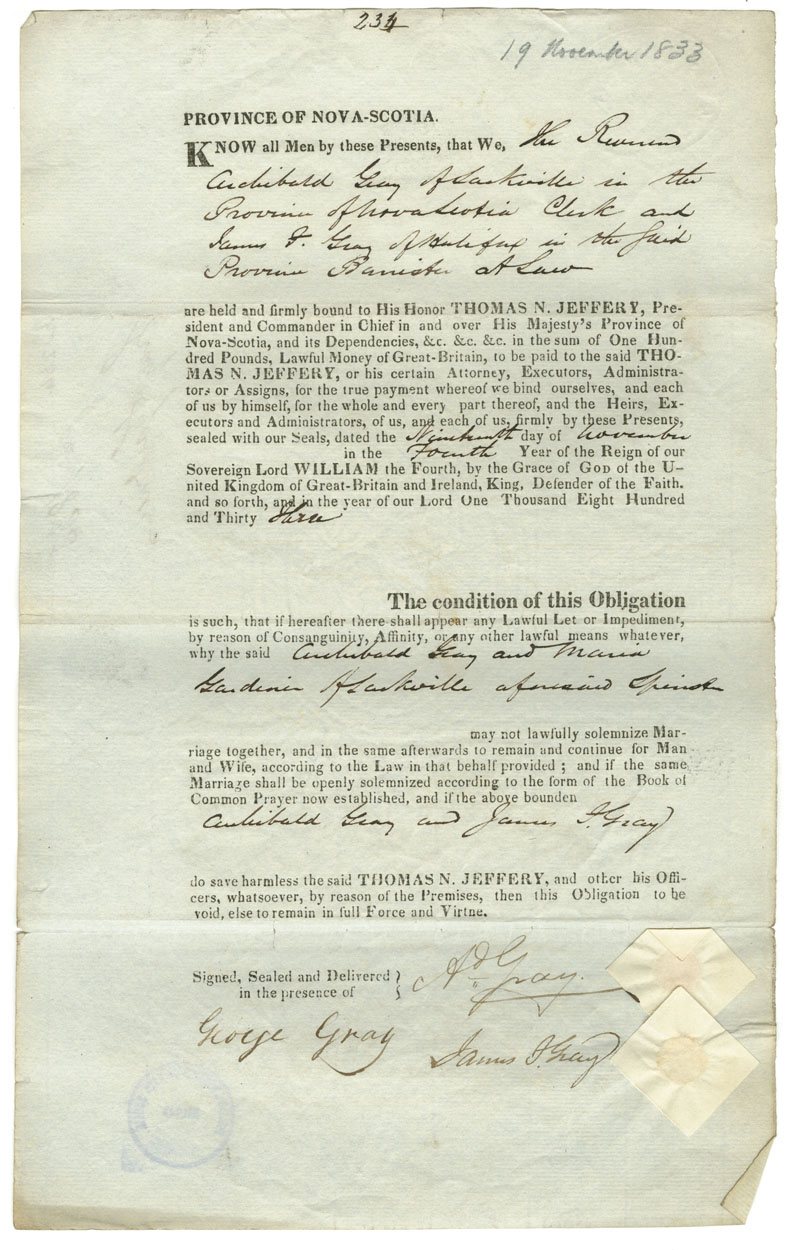 234
19 November 1833
PROVINCE OF NOVA-SCOTIA.
KNOW all Men by these Presents, that We, The Reverend
Archibald Gray of Sackville in the
Province of Nova Scotia Clerk and
James F. Gray of Halifax in the said
Province Barrister at Law
are held and firmly bound to His Honor THOMAS N. JEFFERY, Pre-
sident and Commander in Chief in and over His Majesty's Province of
Nova-Scotia, and its Dependencies, &c. &c. &c. in the sum of One Hun-
dred Pounds, Lawful Money of Great-Britain, to be paid to the said THO-
MAS N. JEFFERY, or his certain Attorney, Executors, Administra-
tors or Assigns, for the true payment whereof we bind ourselves, and each
of us by himself, for the whole and every part thereof, and the Heirs, Ex-
ecutors and Administrators, of us, and each of us, firmly by these Presents,
sealed with our Seals, dated the Nineteenth day of November
in the Fourth Year of the Reign of our
Sovereign Lord WILLIAM the Fourth, by the Grace of GOD of the U-
nited Kingdom of Great-Britain and Ireland, King, Defender of the Faith.
and so forth, and in the year of our Lord One Thousand Eight Hundred
and Thirty three
The condition of this Obligation
is such, that if hereafter there shall appear any Lawful Let or Impediment,
by reason of Consanguinity, Affinity, or any other lawful means whatever,
why the said Archibald Gray and Maria
Gardiner of Sackville aforesaid Spinster
may not lawfully solemnize Mar-
riage together, and in the same afterwards to remain and continue for Man
and Wife, according to the Law in that behalf provided ; and if the same
Marriage shall be openly solemnized according to the form of the Book of
Common Prayer now established, and if the above bounden
Archibald Gray and James F. Gray
do save harmless the said THOMAS N. JEFFERY, and other his Offi-
cers, whatsoever, by reason of the Premises, then this Obligation to be
void, else to remain in full Force and Virtne.
Signed, Sealed and Delivered }
in the presence of
Ad Gray.
George Gray
James F. Gray